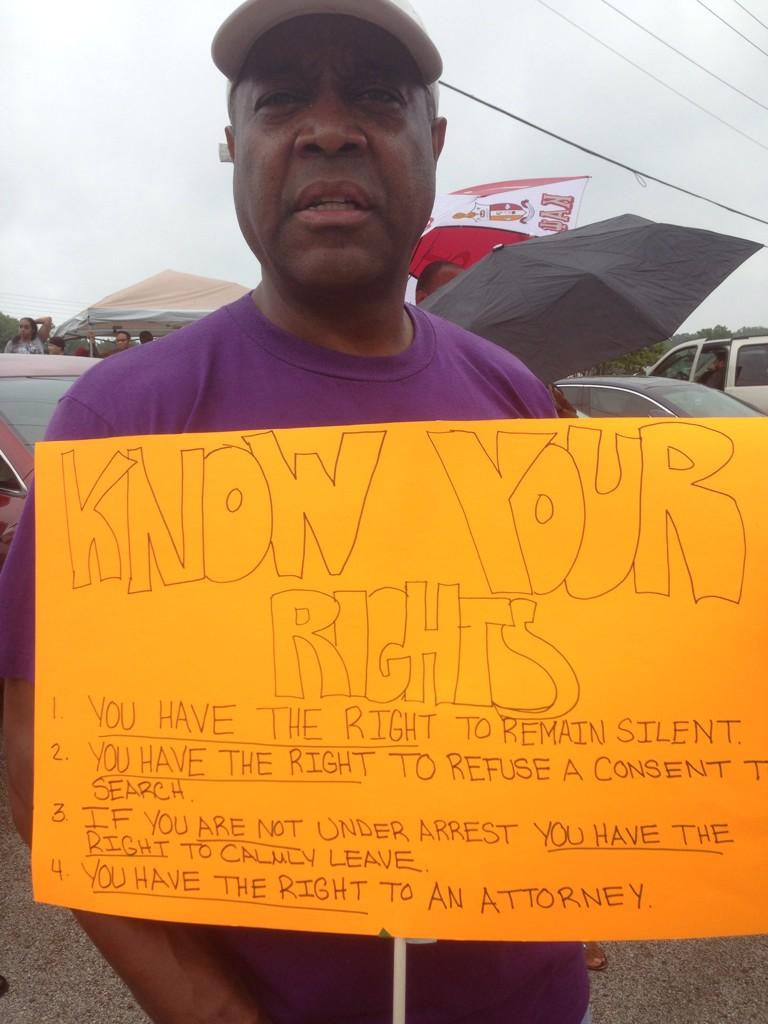 KNOW YOUR
RIGHTS
1. YOU HAVE THE RIGHT TO REMAIN SILENT.
2. YOU HAVE THE RIGHT TO REFUSE A CONSENT T
SEARCH.
3. IF YOU ARE NOT UNDER ARREST YOU HAVE THE
RIGHT TO CALMLY LEAVE.
4. YOU HAVE THE RIGHT TO AN ATTORNEY.